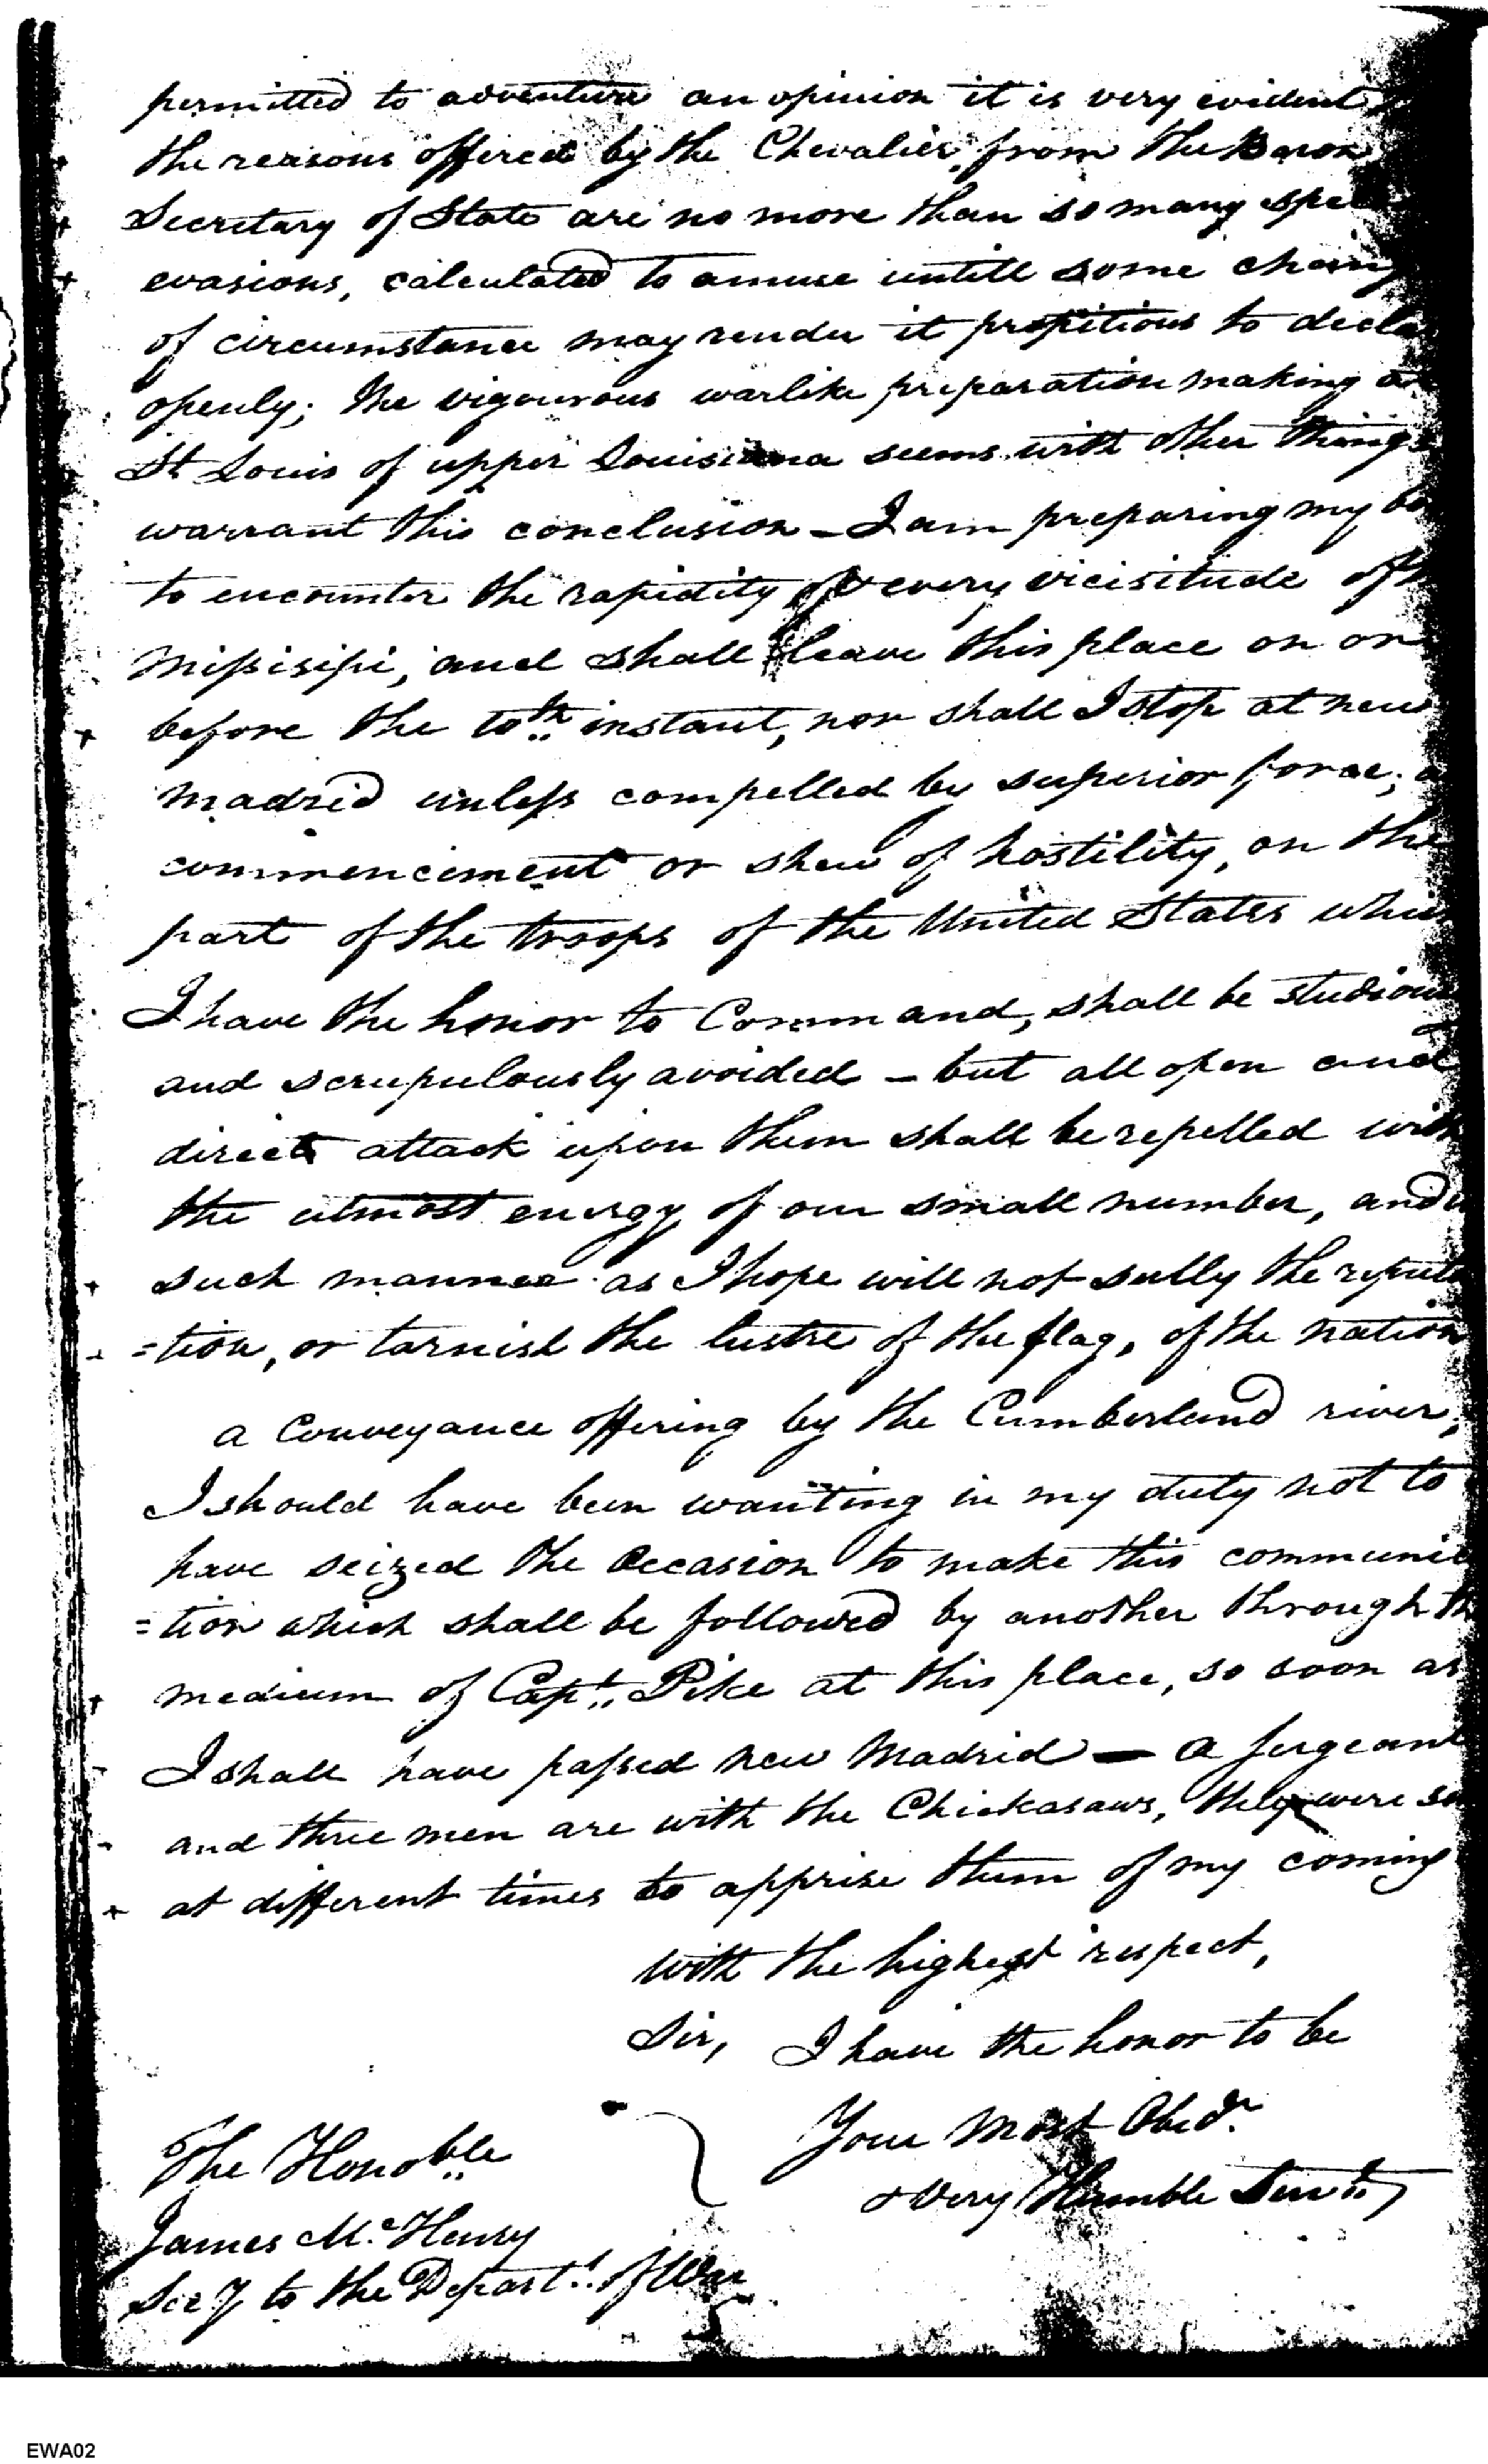 permitted to adventure an opinion it is very evident
the reasons offered by the Chevalier, from the Baron
Secretary of State are no more than so many
evasions, calculated to amuse untill some
of circumstance may render it propitious to
openly; the vigourous warlike preparation making
St Louis of upper Louisiana seems with other things
warrant this conclusion - I am preparing my
to encounter the rapidity & every vicisitude of
Missisipi, and shall leave this place on or
before the 10th instant, nor shall I stop at new
madrid unless compelled by superior force;
commencement or shew of hostility, on the
part of the troops of the United States
I have the honor to Command, shall be
and scrupulously avoided - but all open and
direct attack upon them shall be repelled with
the utmost energy of our small number, and
such manner as I hope will not sully the
=tion, or tarnish the lustre of the flag, of the nation
a Conveyance offering by the Cumberland river,
I should have been wanting in my duty not to
have seized the Occasion to make this
=tion which shall be followed by another through
medium of Capt. Pike at this place, so soon as
I shall have passed new Madrid - a Sergeant
and three men are with the Chickasaws, they were
at different times to apprise them of my coming
with the highest respect,
Sir, I have the honor to be
Your Most Obedt.
& Very Humble Servt.
The Honoble
James McHenry
Secy to the Depart. of War
EWA02